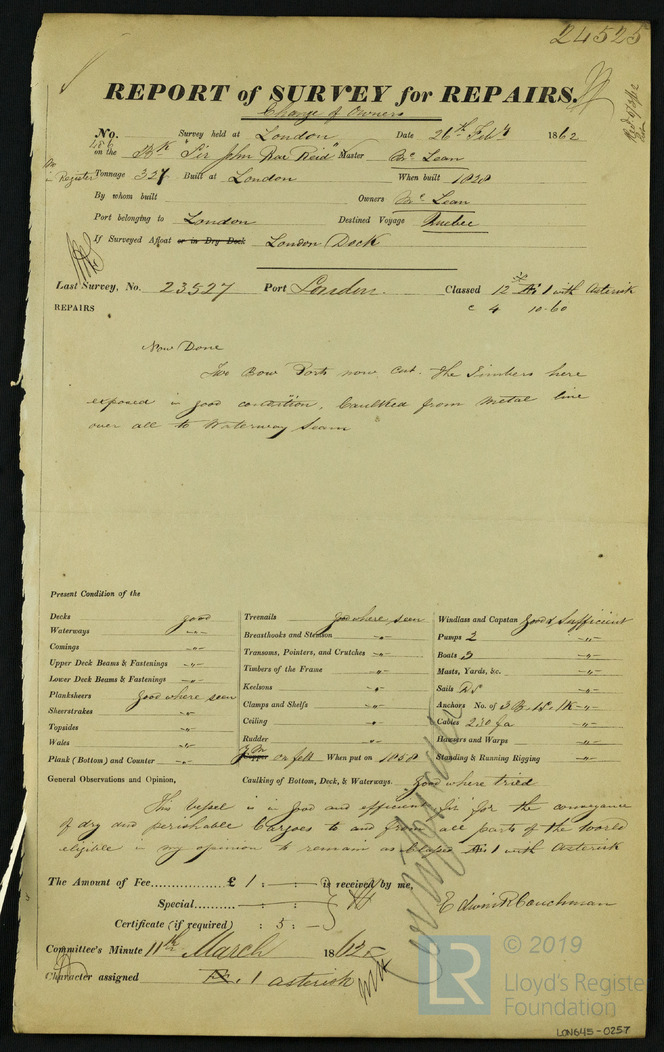 24525
REPORT of SURVEY for REPAIRS.
Change of Owners
No. Survey held at London Date 26th Feby 1862
on the Bk "Sir John Rae Reid" Master Mc Lean
in Register Tonnage 327 Built at London When built 1828
By whom built Owners Mc Lean
Port belonging to London Destined Voyage Quebec
If Surveyed Afloat or in Dry Dock London Dock
Last Survey, No. 23527 Port London Classed 12 A 1 with Asterisk
c 4 10-60
REPAIRS
Now Done
Two Bow Ports now cut. The Timbers here
exposed in good condition, Caulked from metal line
over all to Waterway Seam
Present Condition of the
Decks good
Waterways -"-
Comings -"-
Upper Deck Beams & Fastenings -"-
Lower Deck Beams & Fastenings -"-
Planksheers good where seen
Sheerstrakes -"-
Topsides -"-
Wales -"-
Plank (Bottom) and Counter -"-
Treenails good where seen
Breasthooks and Stemson -"-
Transoms, Pointers, and Crutches -"-
Timbers of the Frame -"-
Keelsons -"-
Clamps and Shelfs -"-
Ceiling -"-
Rudder -"-
Copper YM on felt When put on 1858
Windlass and Capstan Good & Sufficient
Pumps 2 -"-
Boats 2 -"-
Masts, Yards, &c. -"-
Sails DS -"-
Anchors No. of 3 B. 1S. 1K -"-
Cables 230 fa -"-
Hawsers and Warps -"-
Standing & Running Rigging -"-
General Observations and Opinion, Caulking of Bottom, Deck, & Waterways. Good where tried
This vessel is in good and efficient for the conveyance
of dry and perishable Cargoes to and from all parts of the World
eligible in my opinion to remain as classed A 1 with Asterisk
The Amount of Fee £ 1 : - : - is received by me,
Special
Certificate (if required) : 5 : -
Edwin R Couchman
Committee's Minute 11th March 1862
Character assigned A. 1 asterisk
© 2019
LR
Lloyd's Register
Foundation
LON645-0257